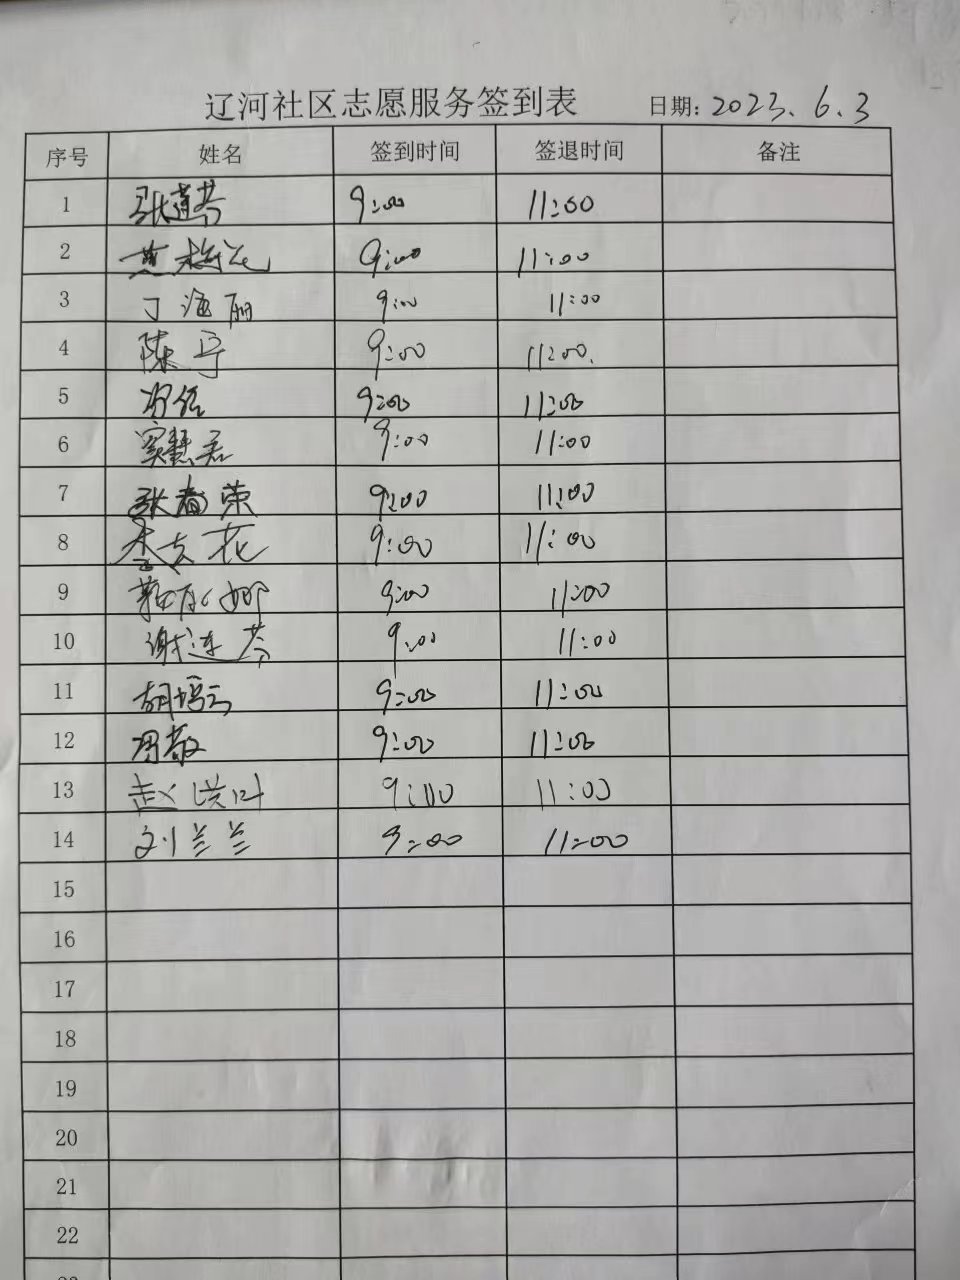 辽河社区志愿服务签到表 日期: 2023.6.3
序号 姓名 签到时间 签退时间 备注
1 张莲芬 9:00 11:00
2 9:00 11:00
3 丁海丽 9:00 11:00
4 陈宇 9:00 11:00.
5 9:00 11:00
6 窦慧君 9:00 11:00
7 张春荣 9:00 11:00
8 9:00 11:00
9 9:00 11:00
10 谢连芬 9:00 11:00
11 9:00 11:00
12 9:00 11:00
13 赵洪叶 9:00 11:00
14 刘兰兰 9:00 11:00
15
16
17
18
19
20
21
22